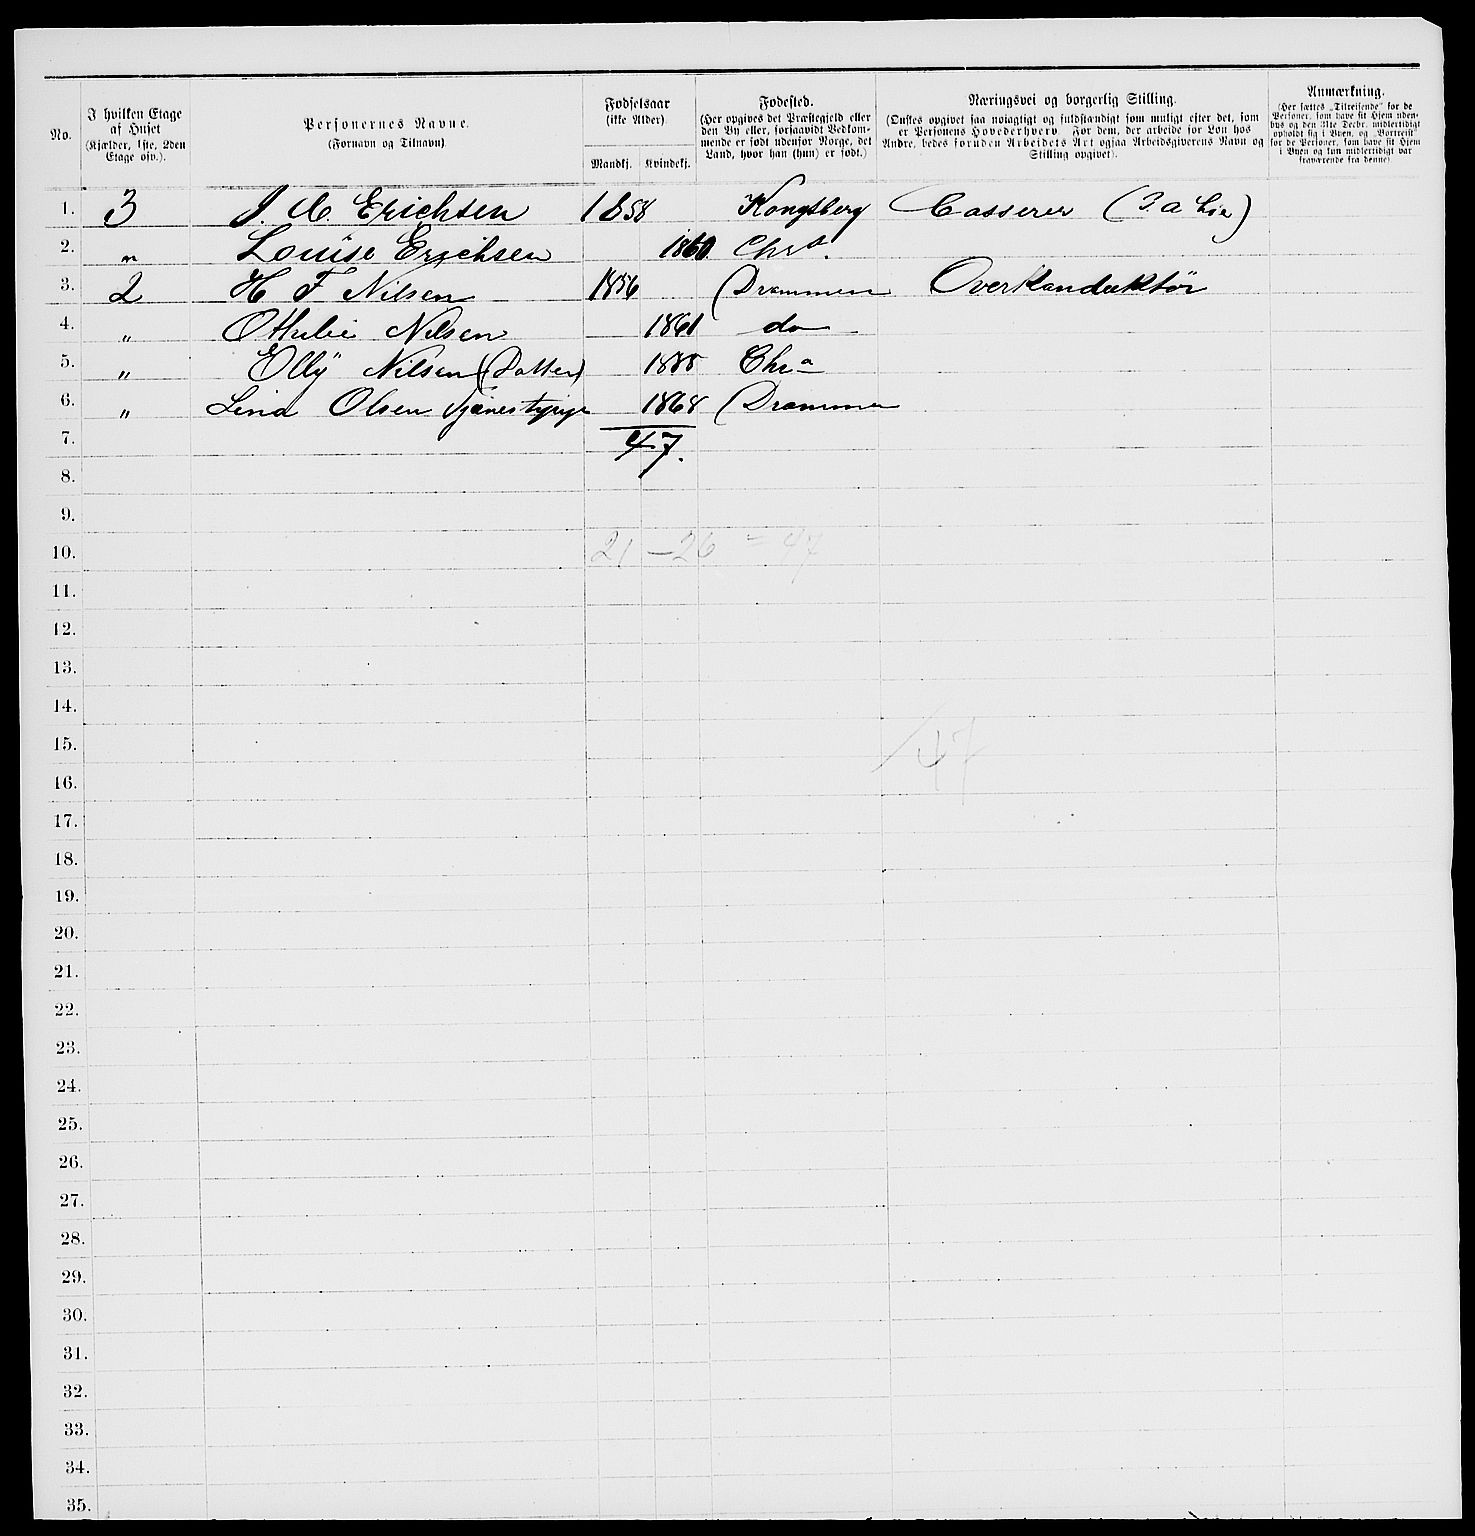 No. | I hvilken Etage af Huset (Kjælder, 1ste, 2den Etage osv.). | Personernes Navne. (Fornavn og Tilnavn) | Fødselsaar (ikke Alder). Mandkj. | Kvindekj. | Fødested. (Her opgives det Præstegjeld eller den By eller, forsaavidt Vedkommende er født udenfor Norge, det Land, hvor han (hun) er født.) | Næringsvei og borgerlig Stilling. (Ønskes opgivet saa nøiagtigt og fuldstændigt som muligt efter det, som er Personens Hovederhverv. For dem, der arbeide for Løn hos Andre, bedes foruden Arbeidets Art ogsaa Arbeidsgiverens Navn og Stilling opgivet). | Anmærkning. (Her sættes „Tilreisende“ for de Personer, som have sit Hjem udenbys og den 31te Decbr. midlertidigt opholdt sig i Byen, og „Bortreist“ for de Personer, som have sit Hjem i Byen og kun midlertidigt var fraværende fra denne)
1. 3 J. C. Erichsen 1858 Kongsberg Casserer
2. " Louise Erichsen 1860 Chra.
3. 2 H F Nilsen 1856 Drammen Overkonduktør
4. " Othilie Nilsen 1861 do
5. " Elly Nilsen (Datter) 1885 Chra
6. " Lina Olsen Tjenestepige 1868 Drammen
7. 47.
8.
9.
10. 21 – 26 = 47
11.
12.
13.
14.
15. 47
16.
17.
18.
19.
20.
21.
22.
23.
24.
25.
26.
27.
28.
29.
30.
31.
32.
33.
34.
35.